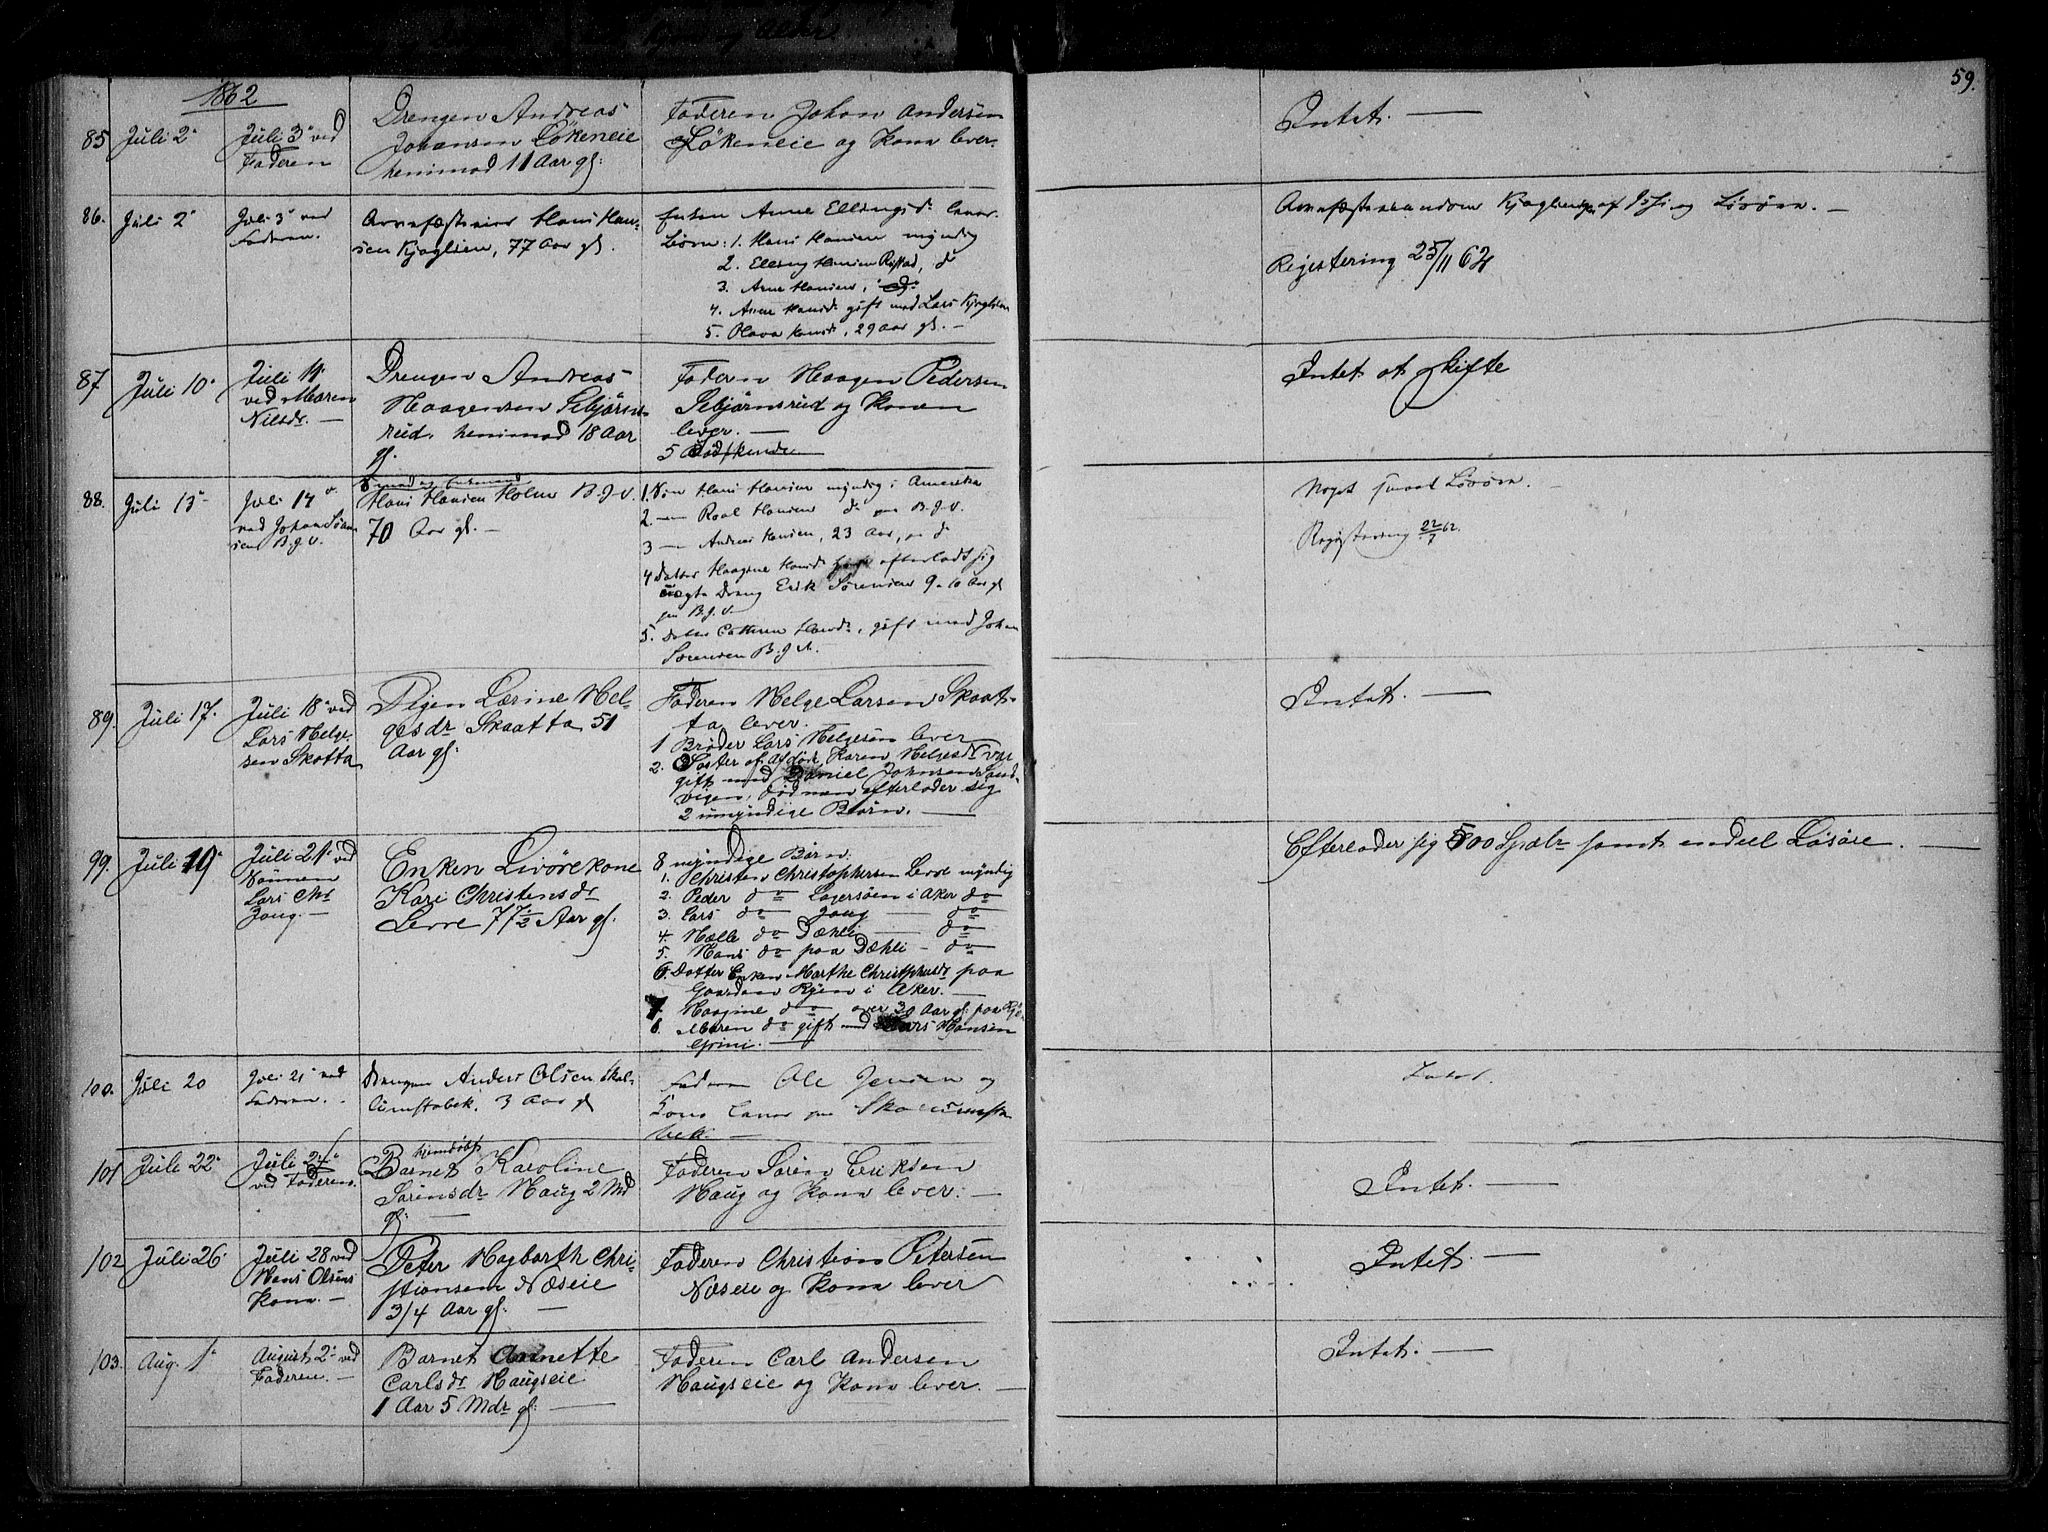 59.
1862
85 Juli 2
Juli 3 ved
Faderen
Drengen Andreas
Johansen Løkeneie
henimod 11 Aar gl:
Faderen Johan Andersen
Løkeneie og Kone lever.
Intet. —
86. Juli 2
Juli 3 ved
Faderen.
Hans Han-
sen Kjaglien, 77 Aar gl.
Enken Anne Ellingsd. lever.
Børn: 1. Hans Hansen myndig
2. Elling Hansen
3. Arne Hansen,
4. Anne Hansd. gift med Lars Kjaglien
5. Olava Hansd. 29 Aar gl. —
og Løsøre. —
Registering 25/11 62
87 Juli 10
Juli 11
ved Maren
Nilsdr. —
Drengen Andreas
Haagensen Isbjørns-
rud. henimod 18 Aar
gl.
Faderen Haagen Pedersen
Isbjørnsrud og Konen
lever. —
5
Intet at skifte
88. Juli 13
Juli 14
ved Johan Søren-
sen B.g.v.
Hans Hansen Holm B.g.v.
70 Aar gl. —
1. Søn Hans Hansen myndig i Amerika
2. — Roal Hansen do paa B.g.v.
3 — Andreas Hansen, 23 Aar, do
4 Datter Haagine Hansd. efterladt sig
ægte Dreng Erik Sørensen 9-10 Aar gl
paa B.g.v.
5. Datter Cathrine Hansd., gift med Johan
Sørensen B.g.v.
Noget smaat Løsøre. —
Registering 22/7 62.
89. Juli 17.
Juli 18 ved
Lars Helge-
sen Skotta
Pigen Lærine Hel-
gesdr Skaatta 51
Aar gl:
Faderen Helge Larsen Skaat-
ta lever.
1 Brøder Lars Helgesen lever
2. Søster af Afdøde, Karen Helgesdr var
gift med Daniel Johnsen Sand-
vigen, død men efterlader sig
2 umyndige Børn. —
Intet. —
99. Juli 19
Juli 21 ved
Sønnen
Lars Chr
Jong. —
Enken Livørekone
Kari Christensdr
Levre 77½ Aar gl.
8 myndige Børn:
1. Christen Christophersen Levre myndig
2. Peder do Lagersøen i Aker do
3. Lars do Jong — do
4. Helle do Dæhli — do
5. Hans do paa Dæhli — do
6. Datter Enken Marthe Christophersdr paa
Gaarden Ryen i Aker. —
7. Haagine do over 30 Aar gl. paa
6. Maren do gift med Lars Hansen
Grini. —
Efterlader sig 500 Spdlr samt endeel Løsøre. —
100. Juli 20
Juli 21 ved
Faderen.
Drengen Anders Olsen Skal-
lumstabek. 3 Aar gl
Faderen Ole Jensen og
Kone lever paa
bek. —
Intet.
101 Juli 22
Juli 24
ved Faderen.
hjemdøbt
Barnet Karoline
Sørensdr Haug 2 Md
gl: —
Faderen Søren Eriksen
Haug og Kone lever. —
Intet. —
102 Juli 26.
Juli 28 ved
Hans Olsens
Kone. —
Peter Hagbarth Chri-
stiansen Næseie
3/4 Aar gl: —
Faderen Christian Petersen
Næseie og Kone lever
Intet. —
103. Aug. 1
August 2 ved
Faderen. —
Barnet Annette
Carlsdr Haugseie
1 Aar 5 Mdr gl: —
Faderen Carl Andersen
Haugseie og Kone lever. —
Intet. —